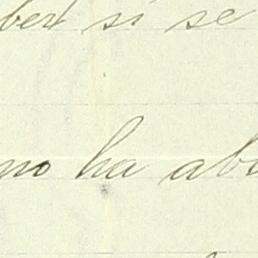 ber si se
no ha ab